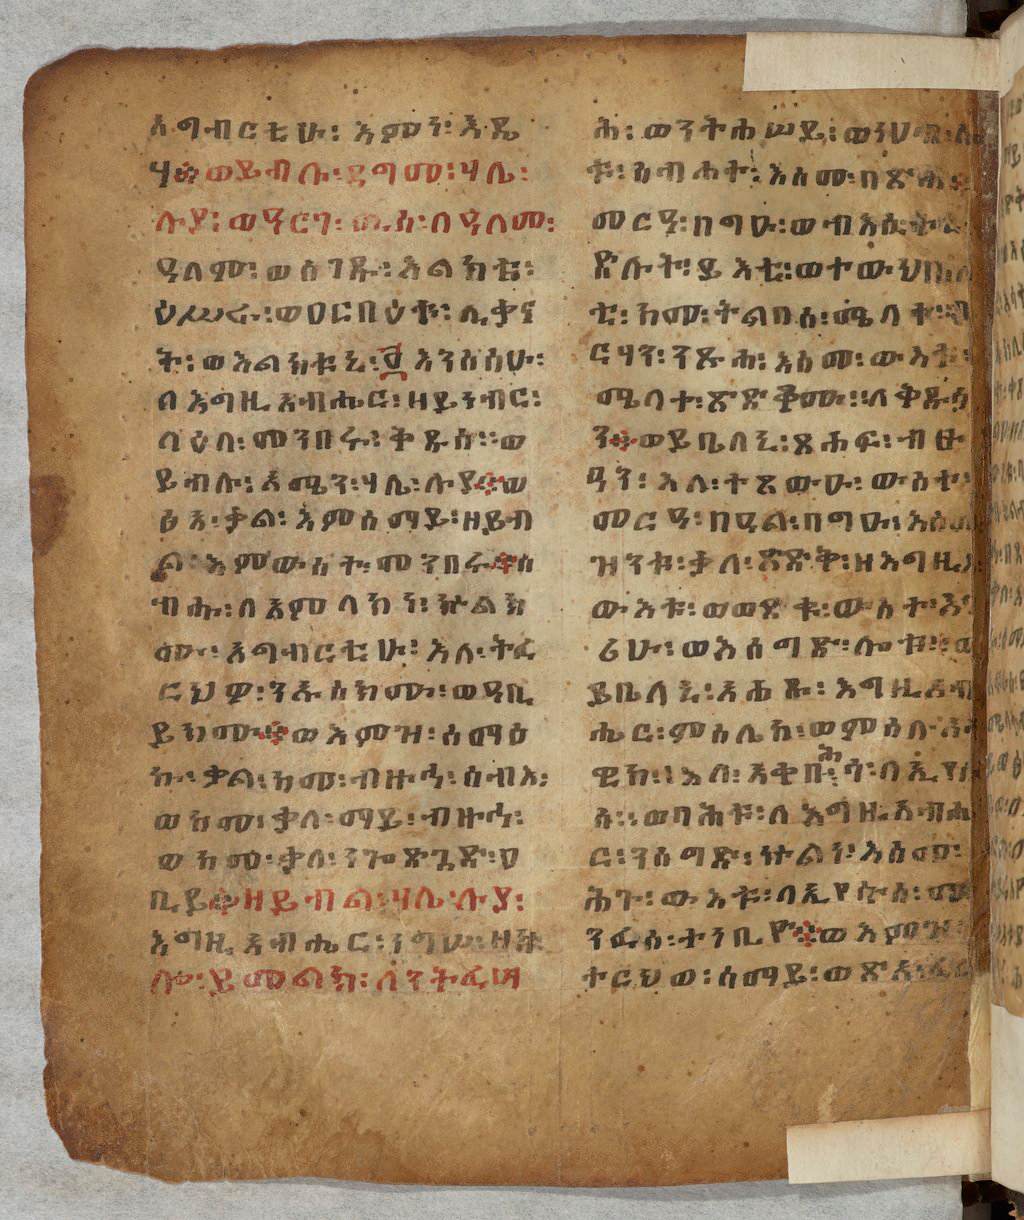 አግብርቲሁ፡ እምን፡ እዴ
ሃ፨ ወይብሉ፡ ዳግመ፡ ሃሌ፡
ሉያ፡ ወዓርገ፡ ጢሱ፡ ለዓለመ፡
ዓለም፡ ወሰገዱ፡ እልክቱ፡
፳ ዕሥራ፡ ወዐርበዕቱ፡ ሊቃና
ት፡ ወእልክቱኒ፡ ፬ እንስሳሁ፡
ለእግዚአብሔር፡ ዘይነብር፡
ላዕለ፡ መንበሩ፡ ቅዱስ። ወ
ይብሉ፡ አሜን፡ ሃሌ፡ ሉያ፨ ወ
ፅአ፡ ቃል፡ እምሰማይ፡ ዘይብ
ል፡ እምውስተ፡ መንበሩ፨ ሰ
ብሑ፡ ለአምላክነ፡ ኵልክ
ሙ፡ አግብርቲሁ፡ እለ፡ ትፈ
ርህዎ፡ ንኡስክሙ፡ ወዓቢ
ይክሙ፨ ወእምዝ፡ ሰማዕ
ኩ፡ ቃለ፡ ከመ፡ ብዙኅ፡ ሰብእ፡
ወከመ፡ ቃለ፡ ማይ፡ ብዙኅ፡
ወከመ፡ ቃለ፡ ነጐድጓድ፡ ዐ
ቢይ፨ ዘይብል፡ ሃሌ፡ ሉያ፡
እግዚአብሔር፡ ነግሠ፡ ዘኵ
ሎ፡ ይመልክ፡ ለንትፈሣ
ሕ፡ ወንትሐሠይ፡ ወንሀብ፡
ቱ፡ ስብሐተ፡ እስመ፡ በጽሐ፡
መርዓ፡ በግዑ፡ ወብእሲት፡
ድሉት፡ ይእቲ፡ ወተውህበ፡
ቲ፡ ከመ፡ ትልበስ፡ ሜላተ፡
ርሃን፡ ንጹሐ፡ እስመ፡ ውእቱ፡
ሜላተ፡ ጽድቆሙ፡ ለቅዱሳ
ን፨ ወይቤለኒ፡ ጸሐፍ፡ ብፁ
ዓን፡ እለ፡ ተጸውዑ፡ ውስተ፡
መርዓ፡ በዓል፡ በግዑ፡ እስመ
ዝንቱ፡ ቃለ፡ ጽድቅ፡ ዘእግዚአ
ውእቱ፡ ወወደቁ፡ ውስተ፡ እገ
ሪሁ፡ ወእሰግድ፡ ሎቱ፡ ወ
ይቤለኒ፡ አሐዱ፡ እግዚአብ
ሔር፡ ምስሌከ፡ ወምስለ፡ አኀ
ዊከ፡ እለ፡ እቀቡ፡ ሕ ሳ፡ ለኢየሱ
ስ፡ ወባሕቱ፡ ለእግዚአብሔ
ር፡ ንሰግድ፡ ኵልነ፡ እስመ፡
ሕጉ፡ ውእቱ፡ ለኢየሱስ፡ መ
ንፈሰ፡ ተነቢዮ፨ ወእምዝ፡
ተርህወ፡ ሰማይ፡ ወጽአ፡ ፈረ